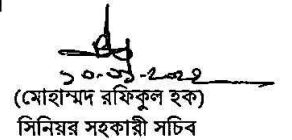 ১০-০৩-২০২২
(মোহাম্মদ রফিকুল হক)
সিনিয়র সহকারী সচিব